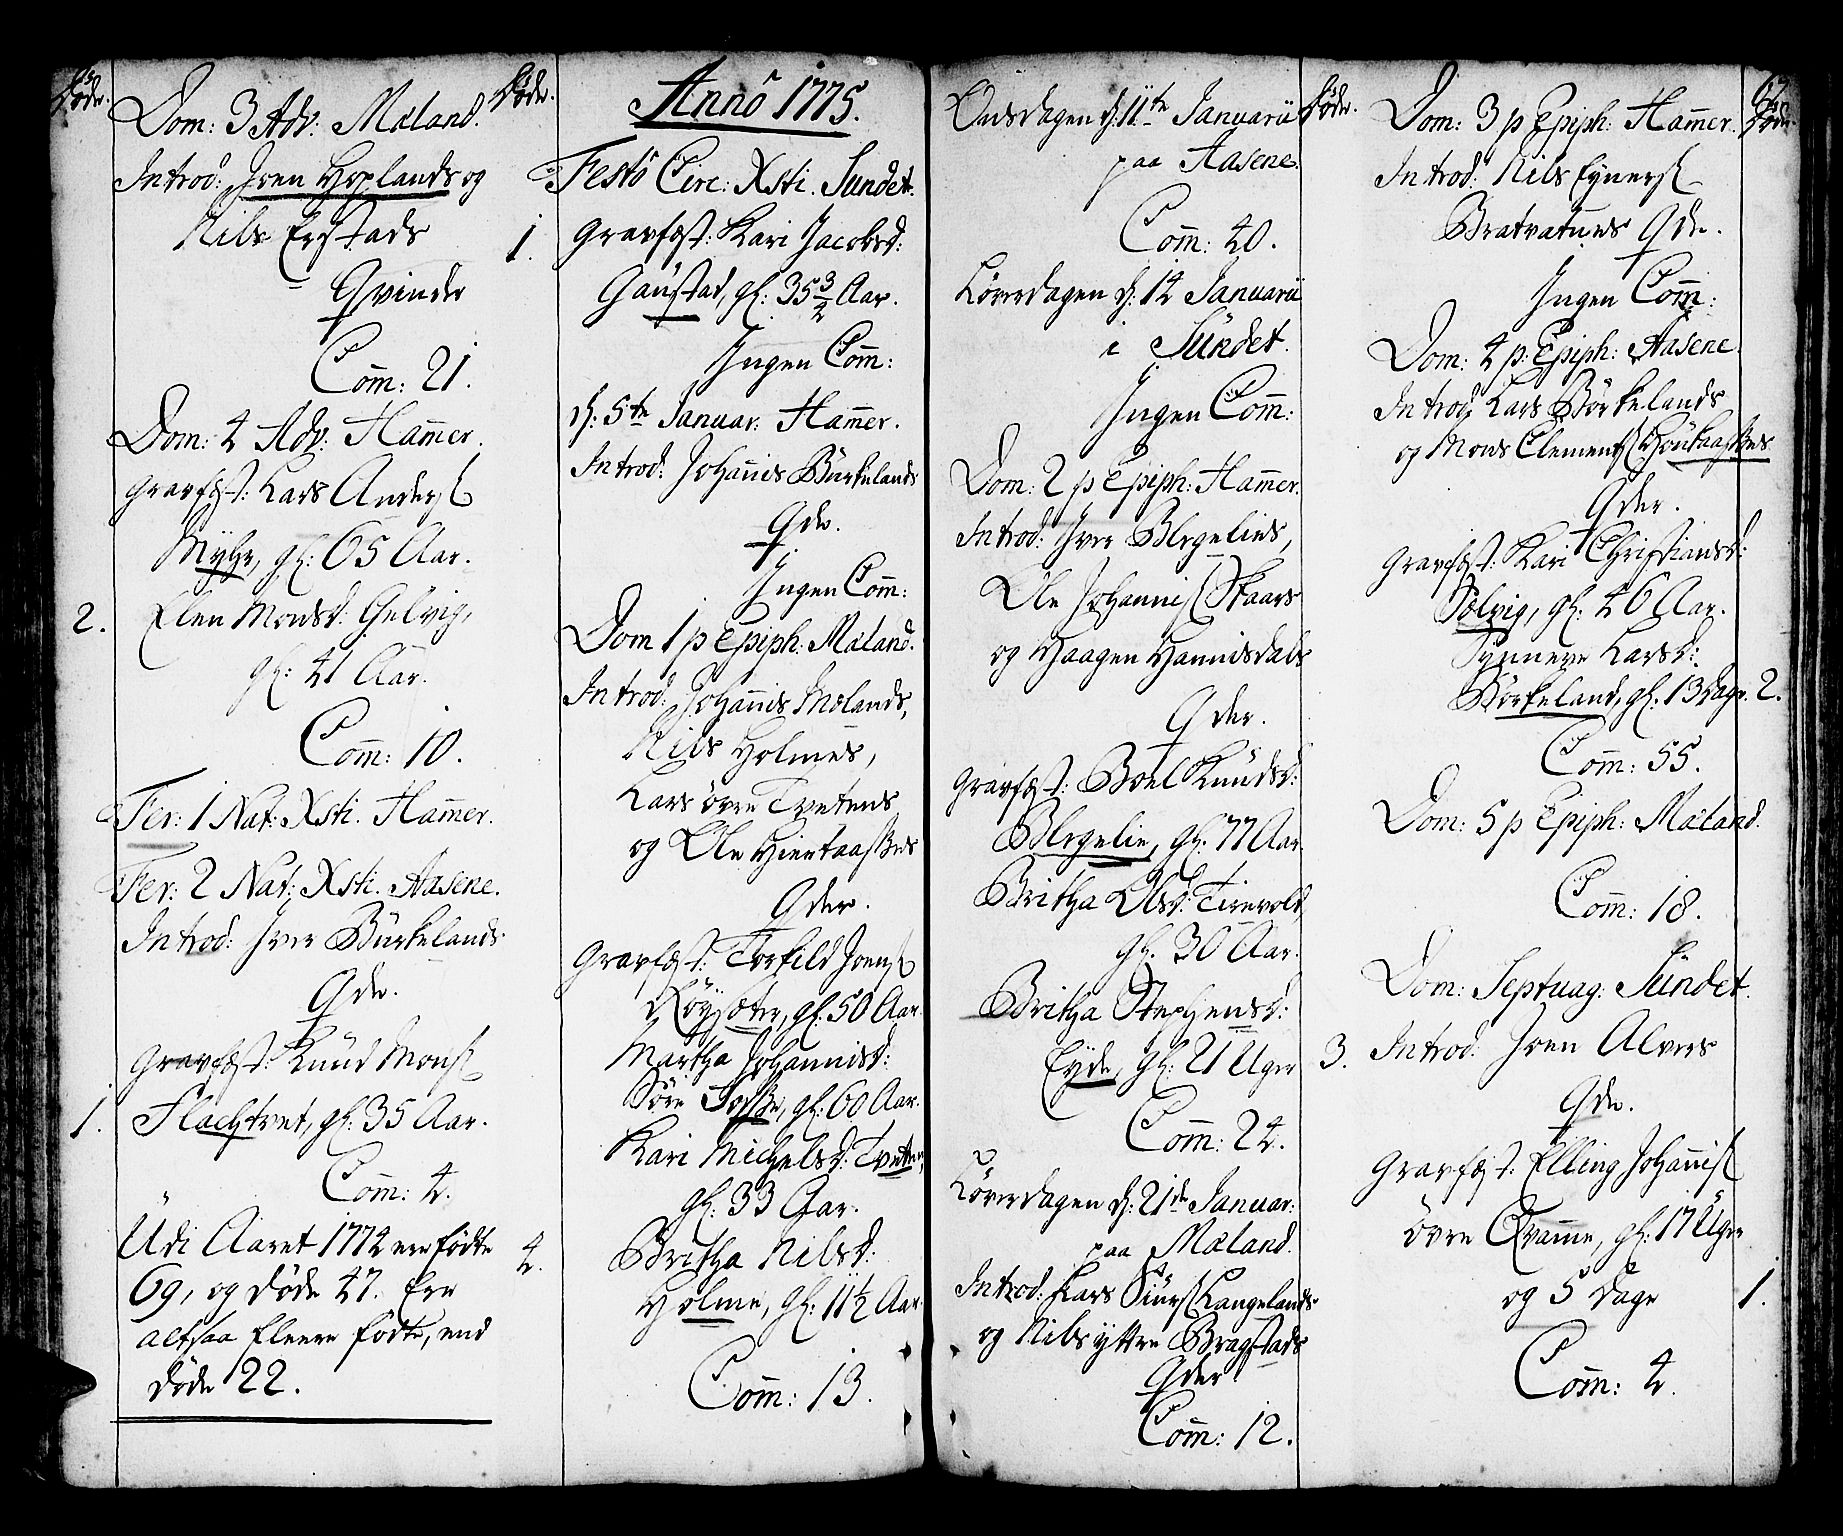 Døde.
Dom: 3 Adv: Mæland.
Introd: Joen Hoplands og
Nils Erstads
Qvinder
Com̅: 21.
Dom: 4 Adv: Ham̅er.
Gravfæst: Lars Anders.
Myhr, gl: 65 Aar.
2. Elen Monsd: Gelvig,
gl: 41 Aar.
Com̅: 10.
Fer: 1 Nat: Xsti. Ham̅er.
Fer: 2 Nat: Xsti. Aasene.
Introd: Iver Bürkelands
Qde.
Gravfæst: Knud Mons.
1. Flachtvet, gl: 35 Aar.
Com̅: 4.
Udi Aaret 1774 ere fødte
69, og døde 47. Ere
altsaa fleere fødte, end
døde 22.
Døde.
Anno 1775.
Festo Circ: Xsti. Sundet.
1. Gravfæst: Kari Jacobsd:
Gaustad, gl: 35 3/4 Aar.
Ingen Com̅:
d: 5te Januar: Ham̅er.
Introd: Johan̅is Bürkelands
Qde.
Ingen Com̅:
Dom 1 p Epiph: Mæland.
Introd: Johan̅is Mælands,
Nils Holmes,
Lars övre Tvetens
og Ole Hiertaas
Qder.
Gravfæst: Torkild Joens.
Röysæter, gl: 50 Aar.
Martha Johannisd:
Söre Fosse, gl: 60 Aar.
Kari Michelsd: Tveten,
gl: 33 Aar.
4. Britha Nilsd:
Holme, gl: 11 1/2 Aar.
Com̅: 13.
Onsdagen d: 11te Januarii
paa Aasene.
Com̅: 40.
Löverdagen d: 14 Januarii
i Sündet.
Ingen Com̅:
Dom: 2 p Epiph: Ham̅er.
Introd: Iver Blegelies,
Ole Johannis. Skaars
og Haagen Hannisdals
Qder.
Gravfæst: Boel Knudsd:
Blegelie, gl: 77 Aar.
Britha Olsd: Tirevold,
gl: 30 Aar.
Britha Stephensd:
Eyde, gl: 21 Uger 3.
Com̅: 24.
Löverdagen d: 21de Januar:
paa Mæland.
Introd: Lars Siurs. Langelands
og Nils yttre Bragstads
Qder
Com̅: 12.
Døde.
Dom: 3 p Epiph: Ham̅er.
Introd: Nils Eyners.
Bratvatnes Qde.
Ingen Com̅:
Dom: 4 p: Epiph: Aasene.
Introd: Lars Börkelands
og Mons Clements.
Qder.
Gravfæst: Kari Christiansd:
Sælvig, gl: 46 Aar.
Synneve Larsd:
Börkeland, gl: 13 Dage. 2.
Com̅: 55.
Dom: 5 p Epiph: Mæland.
Com̅: 18.
Dom: Septuag: Sündet.
Introd: Joen Alvers
Qde.
Gravfæst: Elling Johan̅is.
övre Qvam̅e, gl: 17 Uger
og 5 Dage 1.
Com̅: 4.
Døde.